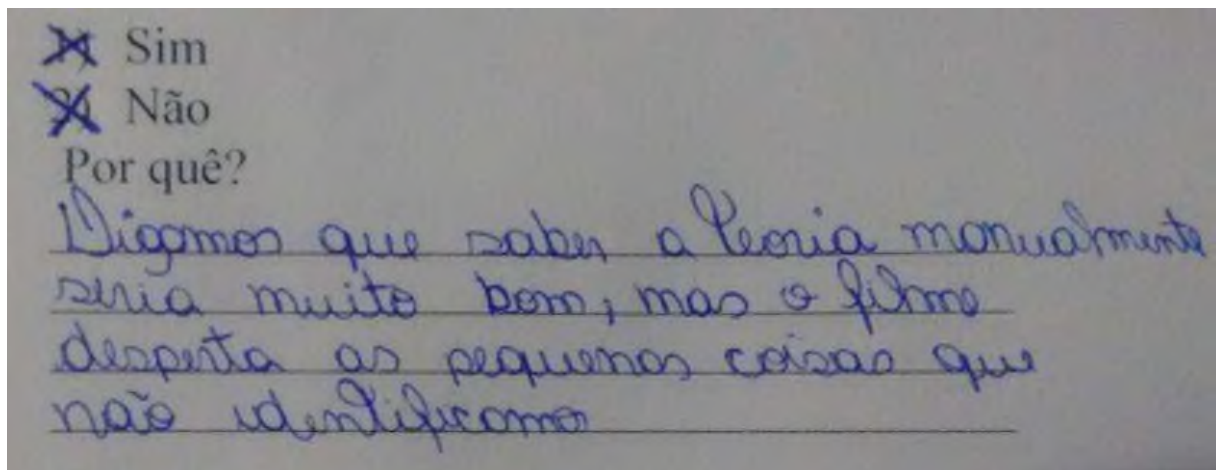 Sim
Não
Por quê?
Digamos que saber a teoria manualmente
seria muito bom, mas o filme
desperta as pequenas coisas que
não identificamos